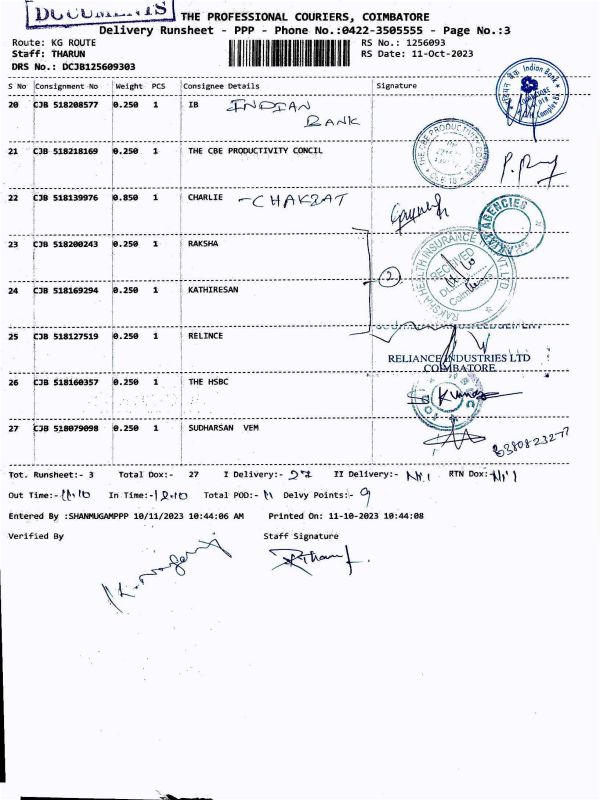 DOCUMENTS
THE PROFESSIONAL COURIERS, COIMBATORE
Delivery Runsheet - PPP - Phone No.:0422-3505555 - Page No.:3
Route: KG ROUTE RS No.: 1256093
Staff: THARUN RS Date: 11-Oct-2023
DRS No.: DCJB125609303
S No Consignment No Weight PCS Consignee Details Signature
20 CJB 518208577 0.250 1 IB INDIAN BANK
Indian Bank
21 CJB 518218169 0.250 1 THE CBE PRODUCTIVITY CONCIL
THE CBE PRODUCTIVITY COUNCIL
22 CJB 518139976 0.850 1 CHARLIE - CHAKRAT
AGENCIES
23 CJB 518200243 0.250 1 RAKSHA
RAKSHA HEALTH INSURANCE TPA PVT LTD
RECEIVED
Coimbatore
2
24 CJB 518169294 0.250 1 KATHIRESAN
25 CJB 518127519 0.250 1 RELINCE
RELIANCE INDUSTRIES LTD
COIMBATORE
26 CJB 518160357 0.250 1 THE HSBC
Kumar
27 CJB 518079098 0.250 1 SUDHARSAN VEM
Tot. Runsheet:- 3 Total Dox:- 27 I Delivery:- 27 II Delivery:- Nil RTN Dox:- Nil
Out Time:- 11.10 In Time:- 12.10 Total POD:- 11 Delvy Points:- 9
Entered By :SHANMUGAMPPP 10/11/2023 10:44:06 AM Printed On: 11-10-2023 10:44:08
Verified By Staff Signature